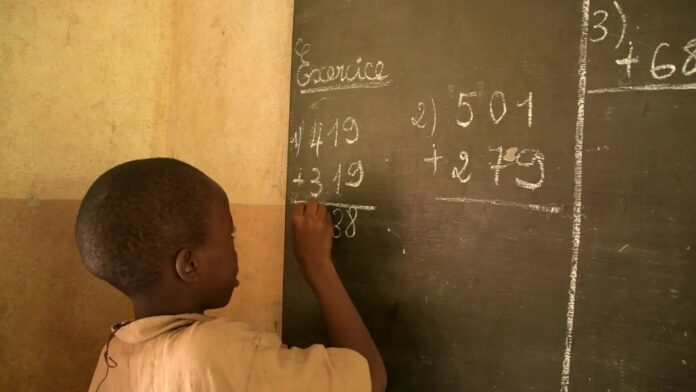 Exercice
1) 419
+ 319
38
2) 501
+ 279
3)
+ 68